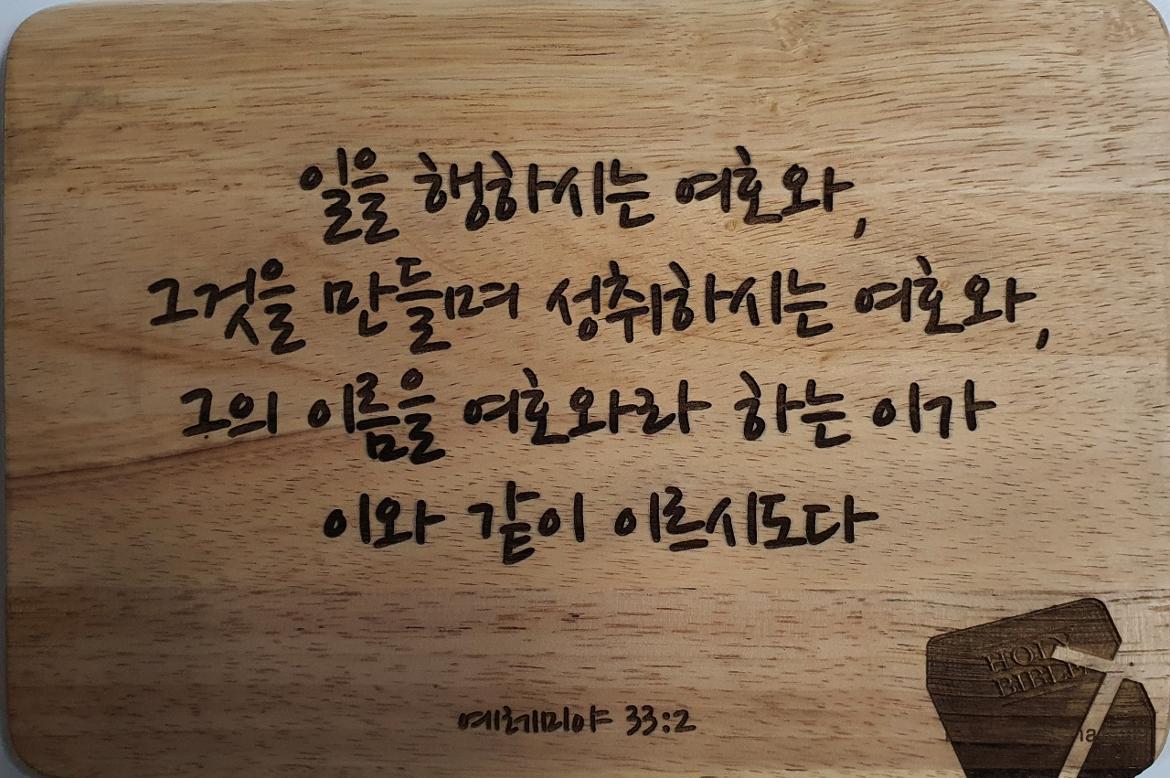 일을 행하시는 여호와,
그것을 만들며 성취하시는 여호와,
그의 이름을 여호와라 하는 이가
이와 같이 이르시도다
HOLY
BIBLE
예레미야 33:2